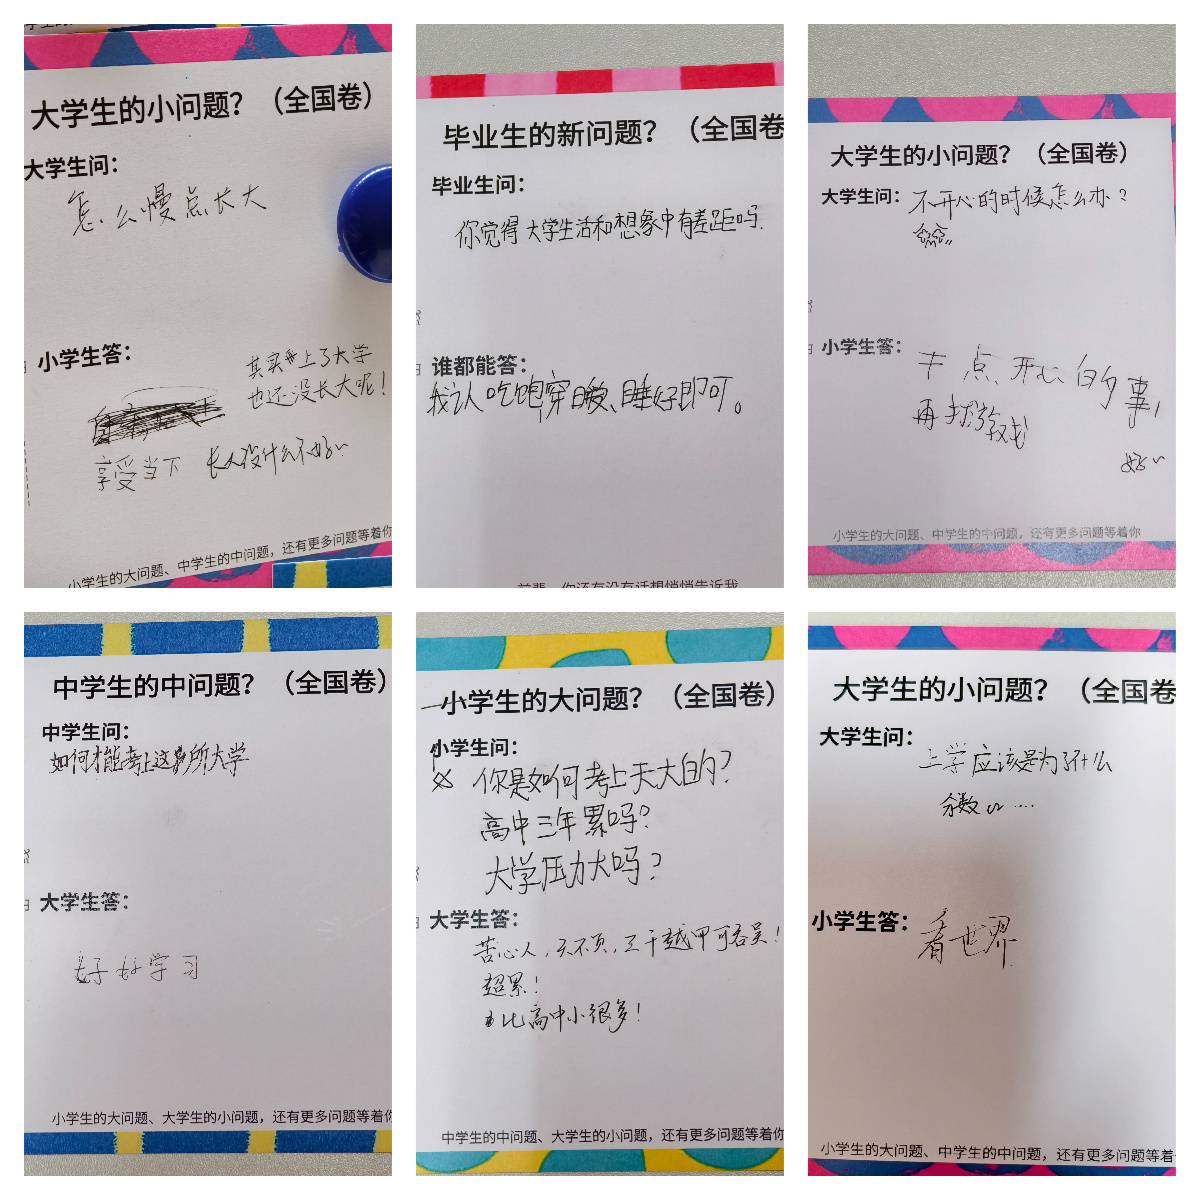 大学生的小问题？（全国卷）
大学生问：
怎么慢点长大
小学生答：
其实上了大学
也还没长大呢！
享受当下 长大没什么不好～
小学生的大问题、中学生的中问题，还有更多问题等着你
毕业生的新问题？（全国卷
毕业生问：
你觉得大学生活和想象中有差距吗.
谁都能答：
我认吃饱穿暖、睡好即可。
前辈，你还有没有话想悄悄告诉我
大学生的小问题？（全国卷）
大学生问：不开心的时候怎么办？
小学生答：
干点开心的事，
再打游戏
好～
小学生的大问题、中学生的中问题，还有更多问题等着你
中学生的中问题？（全国卷）
中学生问：
如何才能考上这所大学
大学生答：
好好学习
小学生的大问题、大学生的小问题，还有更多问题等着你
小学生的大问题？（全国卷）
小学生问：
你是如何考上天大的？
高中三年累吗？
大学压力大吗？
大学生答：
苦心人，天不负，三千越甲可吞吴！
超累！
比高中小很多！
中学生的中问题、大学生的小问题，还有更多问题等着你
大学生的小问题？（全国卷
大学生问：
上学应该是为了什么
分数 ....
小学生答：
看世界
小学生的大问题、中学生的中问题，还有更多问题等着